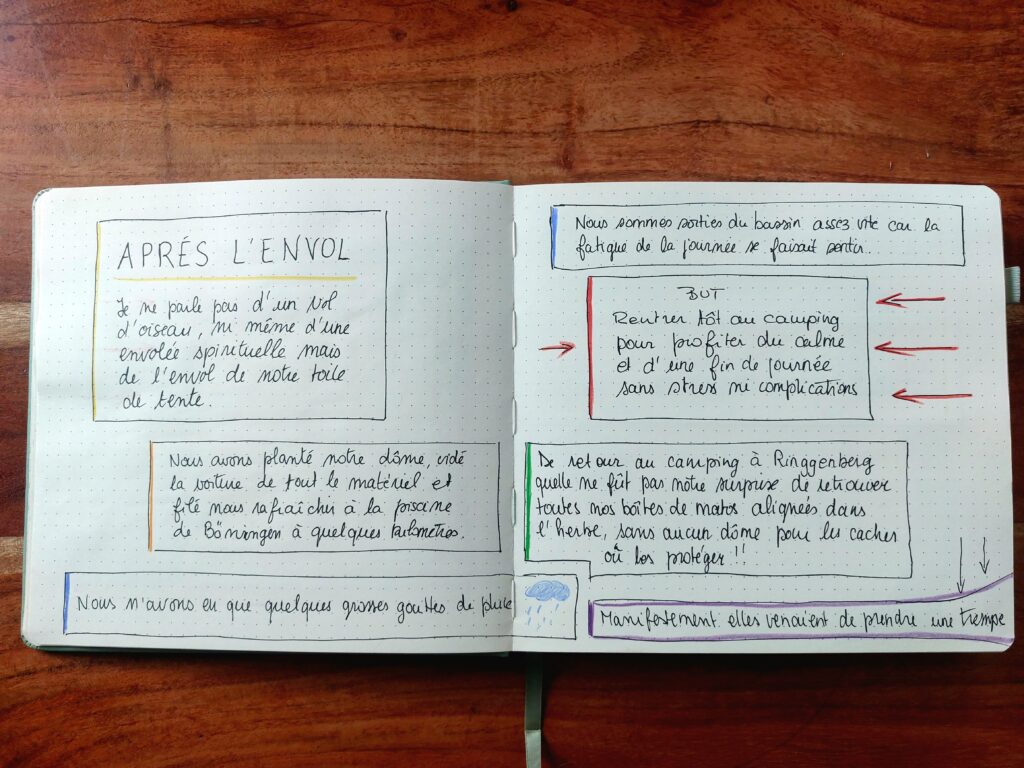 APRÉS L'ENVOL
Je ne parle pas d'un vol
d'oiseau, ni même d'une
envolée spirituelle mais
de l'envol de notre toile
de tente.
Nous avons planté notre dôme, vidé
la voiture de tout le matériel et
filé nous rafraîchir à la piscine
de Bönningen à quelques kilomètres.
Nous n'avons eu que quelques grosses gouttes de pluie
Nous sommes sorties du bassin assez vite car la
fatigue de la journée se faisait sentir.
BUT
Rentrer tôt au camping
pour profiter du calme
et d'une fin de journée
sans stress ni complications
De retour au camping à Ringgenberg
quelle ne fût pas notre surprise de retrouver
toutes nos boîtes de matos alignées dans
l'herbe, sans aucun dôme pour les cacher
où les protéger !!
Manifestement elles venaient de prendre une trempe